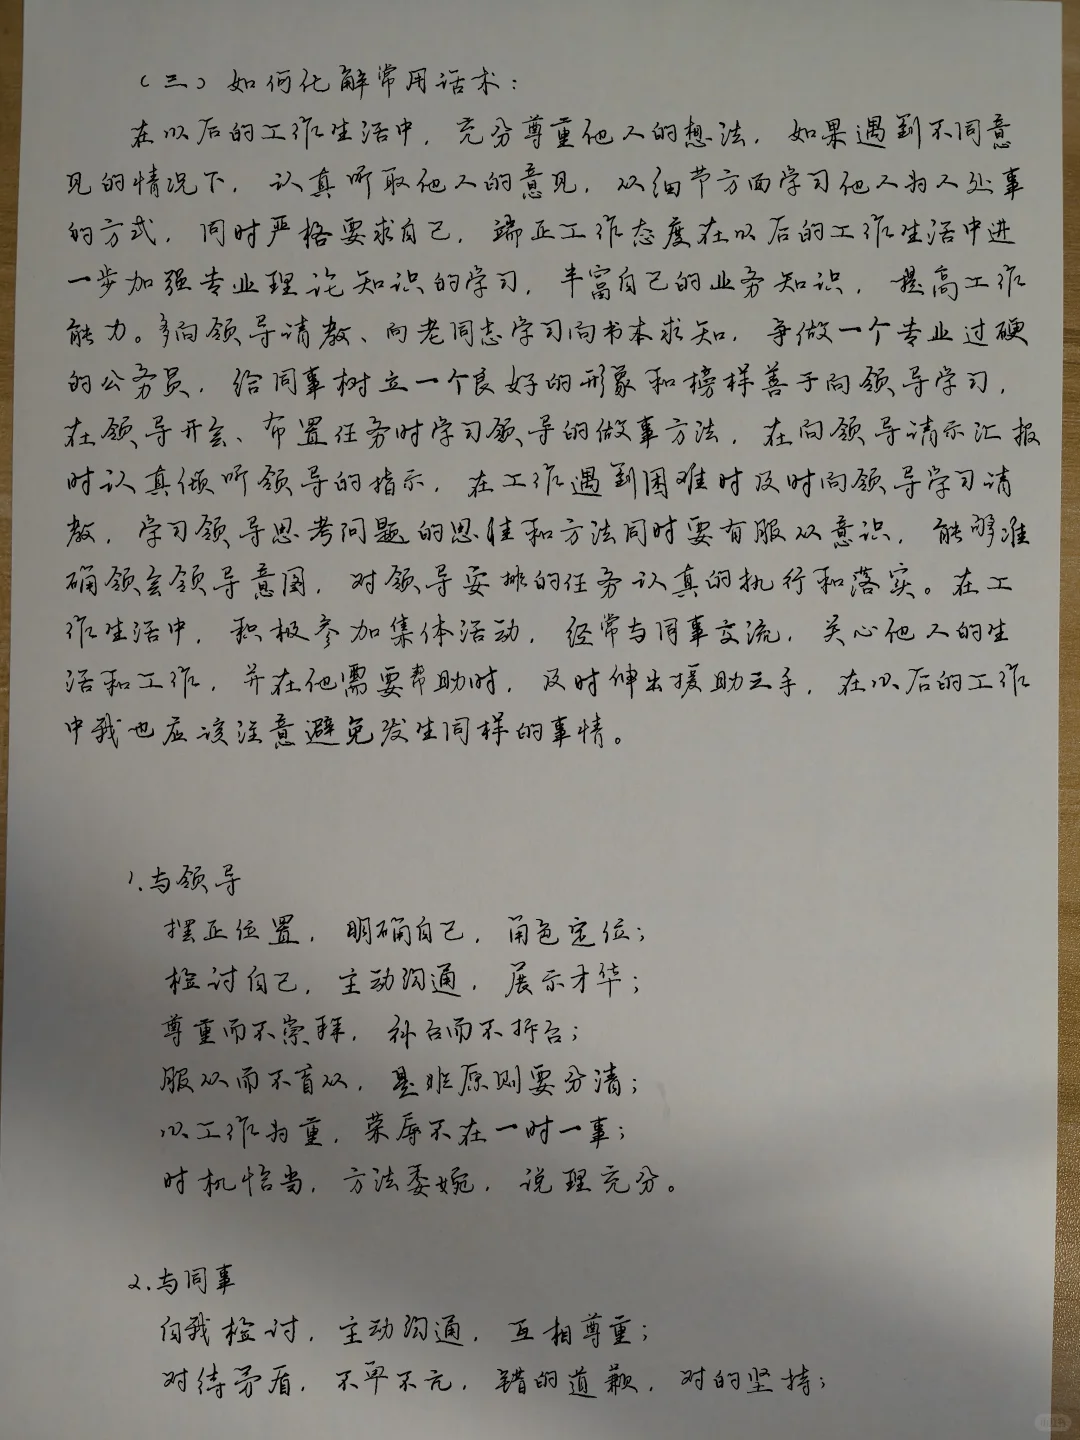 （三）如何化解常用话术：
在以后的工作生活中，充分尊重他人的想法，如果遇到不同意
见的情况下，认真听取他人的意见，从细节方面学习他人为人处事
的方式，同时严格要求自己，端正工作态度在以后的工作生活中进
一步加强专业理论知识的学习，丰富自己的业务知识，提高工作
能力。多向领导请教、向老同志学习向书本求知，争做一个专业过硬
的公务员，给同事树立一个良好的形象和榜样善于向领导学习，
在领导开会、布置任务时学习领导的做事方法，在向领导请示汇报
时认真倾听领导的指示，在工作遇到困难时及时向领导学习请
教，学习领导思考问题的思维和方法同时要有服从意识，能够准
确领会领导意图，对领导安排的任务认真的执行和落实。在工
作生活中，积极参加集体活动，经常与同事交流，关心他人的生
活和工作，并在他需要帮助时，及时伸出援助之手，在以后的工作
中我也应该注意避免发生同样的事情。
1.与领导
摆正位置，明确自己，角色定位；
检讨自己，主动沟通，展示才华；
尊重而不崇拜，补台而不拆台；
服从而不盲从，是非原则要分清；
以工作为重，荣辱不在一时一事；
时机恰当，方法委婉，说理充分。
2.与同事
自我检讨，主动沟通，互相尊重；
对待矛盾，不卑不亢，错的道歉，对的坚持；
小红书